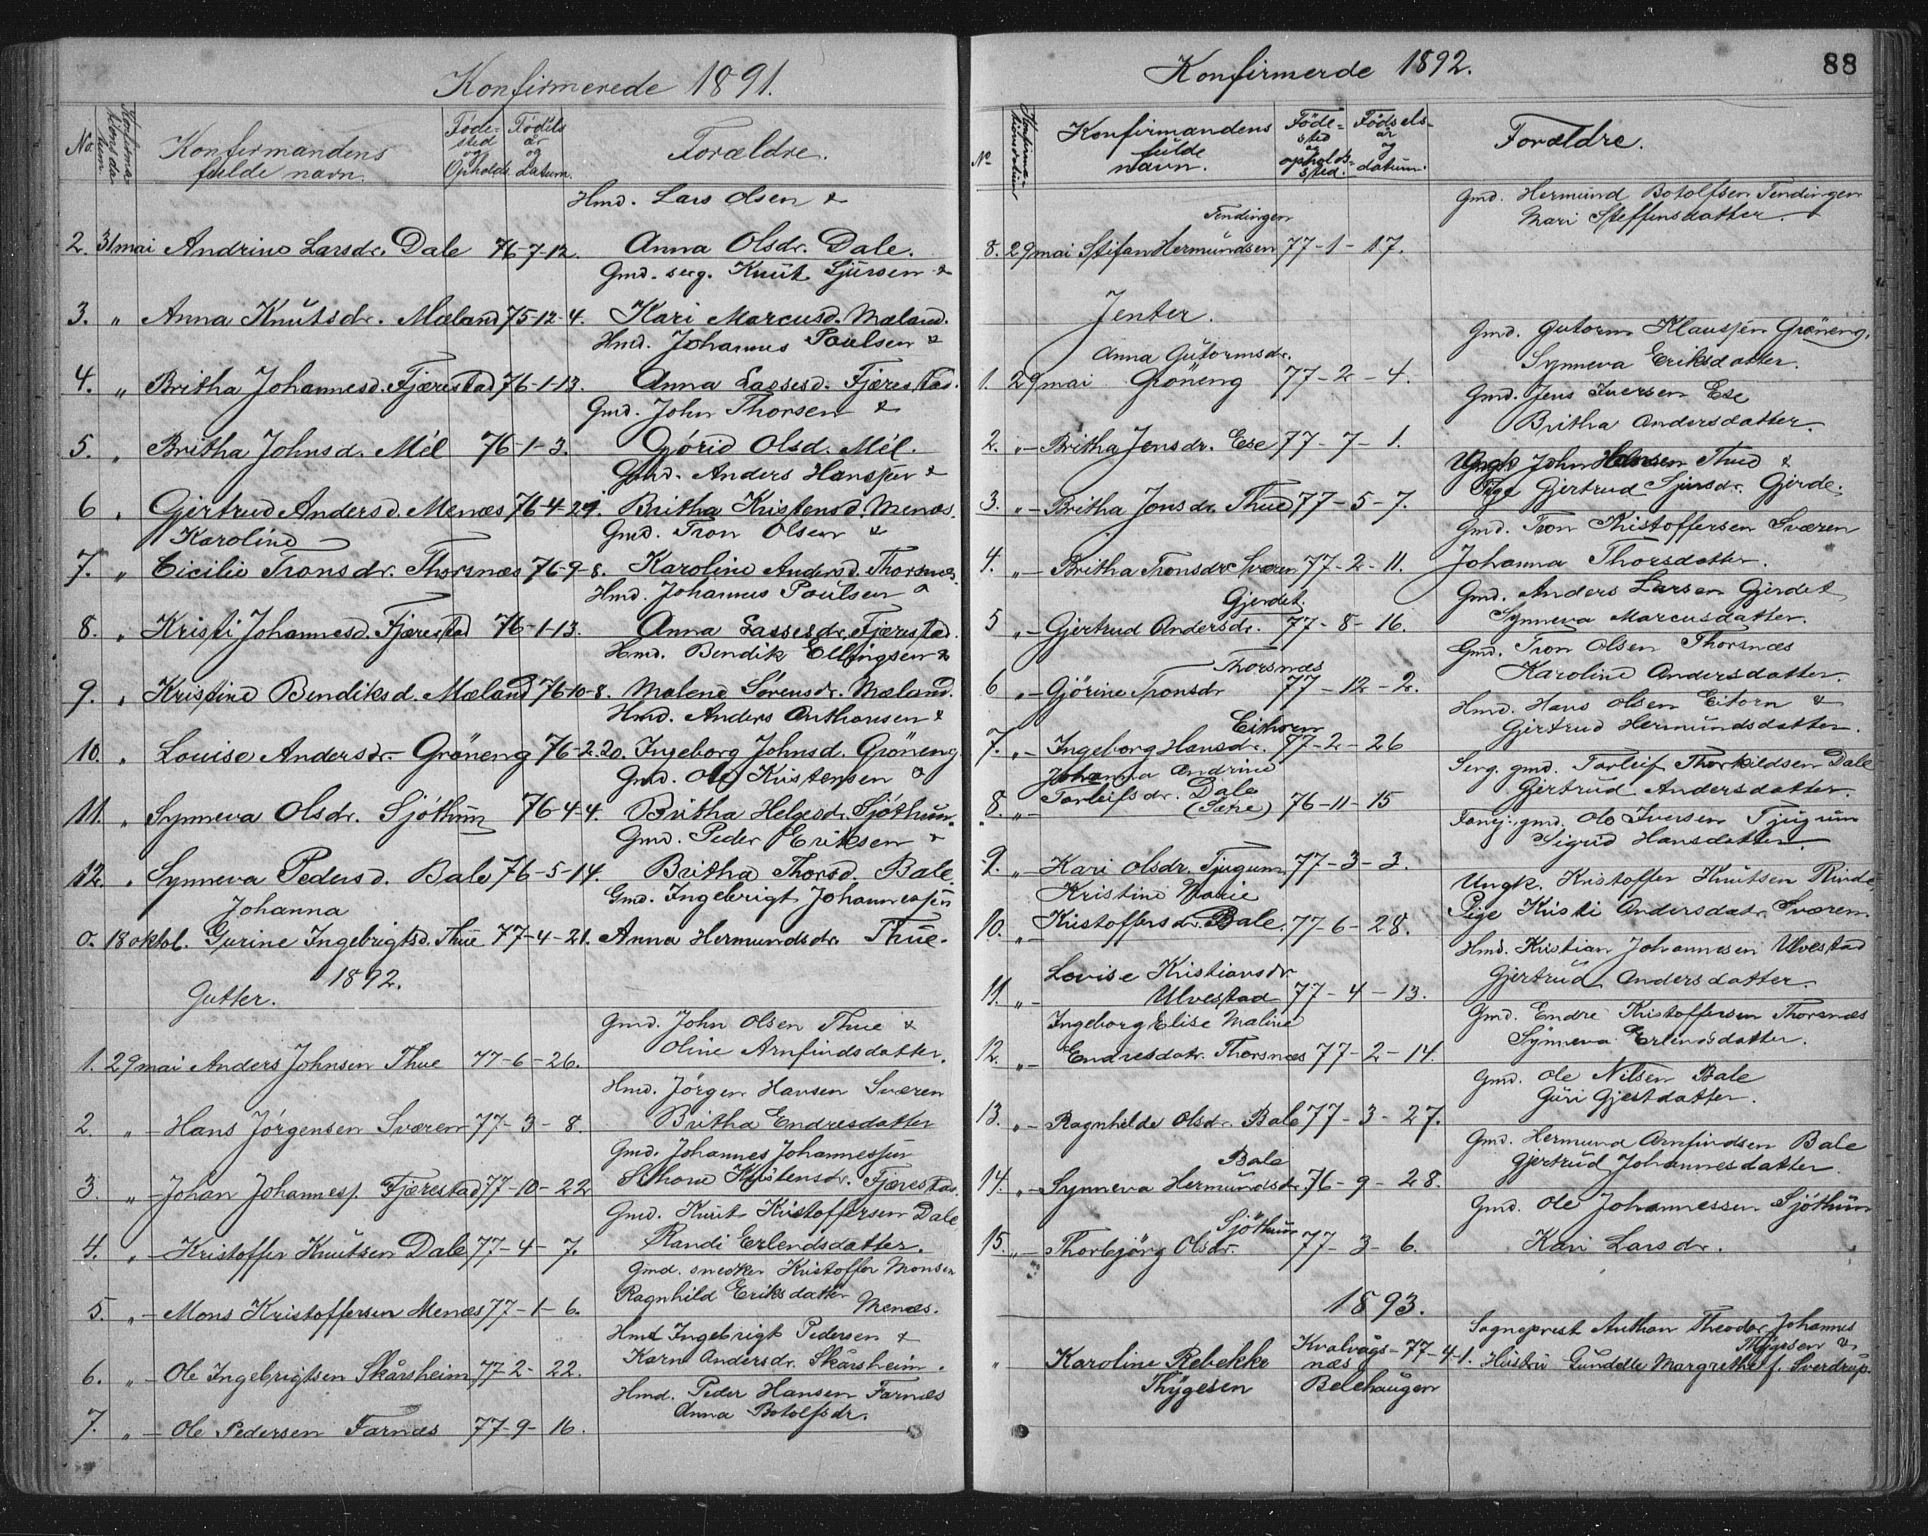 Konfirmerede 1891.
No. Konfirmations datum. Konfirmandens fulde navn. Føde-sted og Opholds. Fødsels år og datum. Forældre.
Hmd. Lars Olsen &
2. 31 mai Andrine Larsdr. Dale 76-7-12. Anna Olsdr. Dale.
Gmd. serg. Knut Sjursen &
3. " Anna Knutsdr. Mæland 75-12-4. Kari Marcusd. Mæland.
Hmd. Johannes Poulsen &
4. " Britha Johannesd. Fjærestad 76-1-13. Anna Lassesd. Fjærestad.
Gmd. John Thorsen &
5. " Britha Johnsd. Mél 76-1-3. Gjórid Olsd. Mél.
Gmd. Anders Hansen &
6 " Gjertrud Andersd. Menæs 76-4-29. Britha Kristensd. Menæs.
Karoline Gmd. Tron Olsen &
7. " Cicilie Tronsdr. Thorsnæs 76-9-8. Karoline Andersd. Thorsnæs.
Hmd. Johannes Poulsen &
8. " Kristi Johannesd. Fjærestad 76-1-13. Anna Lassesdr. Fjærestad.
Hmd. Bendik Ellingsen &
9. " Kristine Bendiksd. Mæland 76-10-8. Malene Sørensdr. Mæland.
Hmd. Anders Anthonsen &
10. " Louise Andersdr. Gröneng 76-2-20. Ingeborg Johnsd. Gröneng
Gmd. Ole Kristensen &
11. " Synneva Olsdr. Sjóthun 76-4-4. Britha Helgesdr. Sjóthun.
Gmd. Peder Eriksen &
12. " Synneva Pedersd. Bale 76-5-14. Britha Thorsd. Bale.
Johanna Gmd. Ingebrigt Johannessen
0. 18 oktob. Gurine Ingebrigtsd. Thue 77-4-21. Anna Hermundsdr. Thue.
1892.
Gutter.
Gmd. John Olsen Thue &
1. 29 mai Anders Johnsen Thue 77-6-26. Oline Arnfindsdatter.
Hmd. Jörgen Hansen Sværen
2. " Hans Jörgensen Sværen 77-3-8. Britha Endresdatter
Gmd. Johannes Johannessen
3. " Johan Johannes. Fjærestad 77-10-22 Kristensdr. Fjærestad.
Gmd. Knut Kristoffersen Dale
4. " Kristoffer Knutsen Dale 77-4-7. Randi Erlendsdatter.
Gmd. snedker Kristoffer Monsen
5. " Mons Kristoffersen Menæs 77-1-6. Ragnhild Eriksdatter Menæs.
Hmd Ingebrigt Pedersen &
6. " Ole Ingebrigtsen Skårsheim 77-2-22. Kari Andersdr. Skårsheim.
Hmd. Peder Hansen Farnæs
7. " Ole Pedersen Farnæs 77-9-16. Anna Botolfsdr.
Konfirmerde 1892.
88
No Konfirmationsdatum Konfirmandens fulde navn. Föde-sted og opholds-sted. Födsels-år og datum. Forældre.
Gmd. Hermund Botolfsen Tendingen
Mari Steffensdatter.
Tendingen
8. 29 mai Stefan Hermundsen 77-1-17.
Jenter.
Gmd. Gutorm Klausen Gröneng.
Anna Gutormsdr. Synneva Eriksdatter.
1. 29 mai Gröneng 77-2-4.
Gmd. Jens Iversen Ese
Britha Andersdatter.
2. " Britha Jensdr. Ese 77-7-1.
Ungk. John Hansen Thue &
3. " Britha Jonsdr. Thue 77-5-7. Pige Gjertrud Sjursdr. Gjerde.
Gmd. Tron Kristoffersen Sværen
4. " Britha Tronsdr. Sværen 77-2-11. Johanna Thorsdatter.
Gjerdet. Gmd. Anders Larsen Gjerdet
5 " Gjertrud Andersdr. 77-8-16. Synneva Marcusdatter.
Gmd. Tron Olsen Thorsnæs
Thorsnæs Karoline Andersdatter.
6 " Gjörine Tronsdr 77-12-2.
Hmd. Hans Olsen Eitorn &
Eithorn Gjertrud Hermundsdatter.
7. " Ingeborg Hansdr. 77-2-26
Johanna Andrine Serg. gmd. Torleif Thorkildsen Dale
8. " Torleifsdr. Dale (Sære) 76-11-15 Gjertrud Andersdatter.
Fanej. gmd. Ole Iversen Tjugum
Sigrid Hansdatter.
9. " Kari Olsdr. Tjugum 77-3-3.
Kristine Marie Ungk. Kristoffer Knutsen Rinde
10. " Kristoffersdr. Bale. 77-6-28. Pige Kristi Andersdatr. Sværen.
Hmd. Kristian Johannesen Ulvestad
Lovise Kristiansdr Gjertrud Andersdatter.
11. " Ulvestad 77-4-13.
Ingeborg Elise Maline Gmd. Endre Kristoffersen Thorsnæs
12. " Endresdatr. Thorsnæs 77-2-14. Synneva Erlendsdatter.
Gmd. Ole Nilsen Bale
Guri Gjestdatter.
13. " Ragnhilde Olsdr. Bale 77-3-27.
Gmd. Hermund Arnfindsen Bale
Bale Gjertrud Johannesdatter.
14. " Synneva Hermundsdr 76-9-28.
Gmd. Ole Johannessen Sjóthun
Sjóthun
15. " Thorbjörg Olsdr. 77-3-6. Kari Larsdr.
1893.
Sogneprest Anthon Theodor Johannes Thygesen &
" Karoline Rebekke Kvalvågs-næs 77-4-1. Hustru Gundelle Margrethe f. Sverdrup.
Thygesen Belehaugen